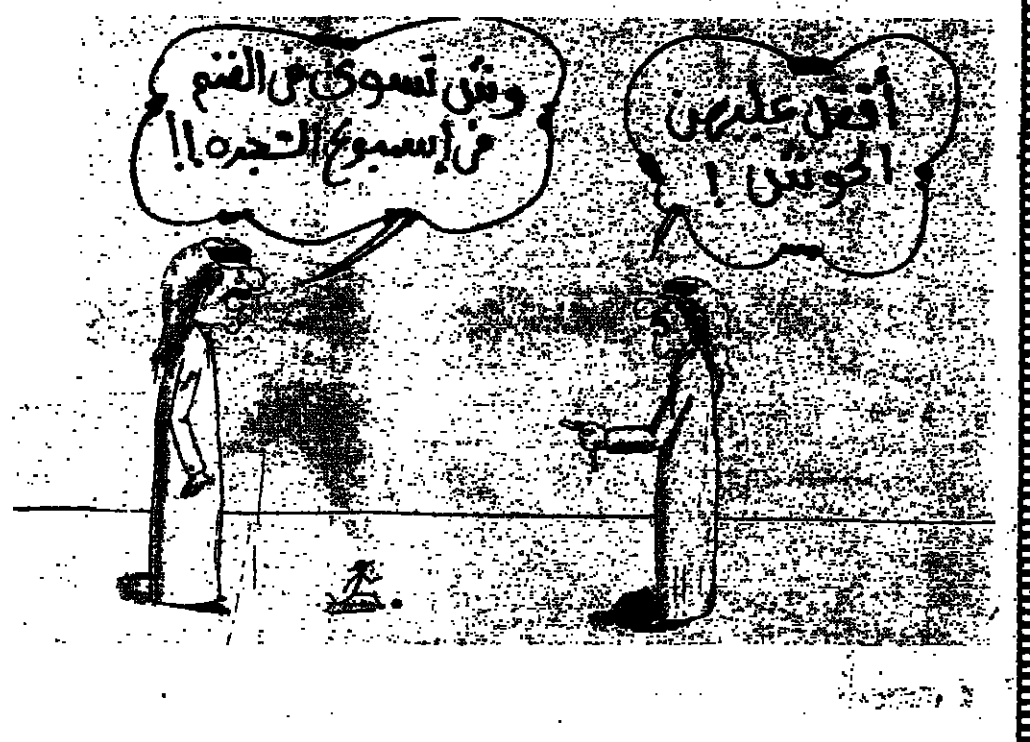 وش تسوى في الغنم
في إسبوع الشجره !!
أقفل عليهن
الحوش !